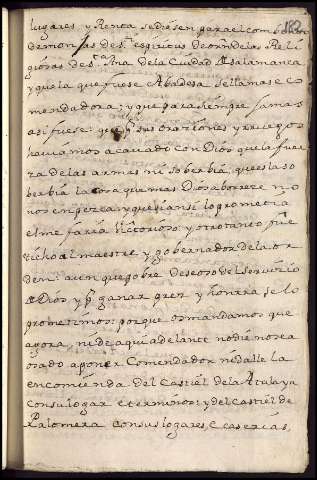 182
lugares y Renta se diesen para el comb
de monjas de S.ti espiritus de orn de las Reli
giosas de S.ta Ana de la Ciudad d Salamanca
y que la que fuese Abadesa se llamase Co
mendadora; y que para siempre jamas
asi fuese: que p.r sus oraziones y ruegos
haviamos acavado con Dios que la fuer
za de las armas ni soberbia, que es la so
berbia la cosa que mas Dios aboreze no
nos engezca, y que si ansi lo prometia
el me faria victorioso: y otro tanto fue
dicho al maestre y gobernador de la or
den: a un que gobre deseoso del servicio
d Dios y p.r ganar prez y honrra se lo
prometimos: porque os mandamos que
agora, ni de aqui adelante nadie no sea
osado a poner Comendador ni dalle la
encomienda del Castiel de la Atalaya
con su logar e terminos: y del castiel de
Palomera con sus logares, e caserias,